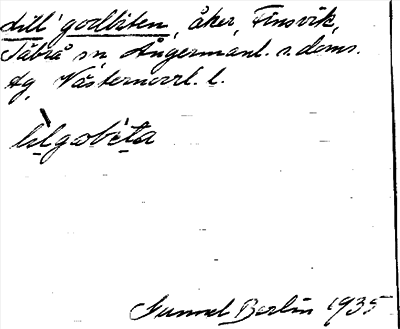 dill godbiten, åker, Finsvik,
Säbrå sn, Ångermanl. s. doms.
Ag, Västernorrl. l.
lilgobeta
Gunnel Berlin 1935